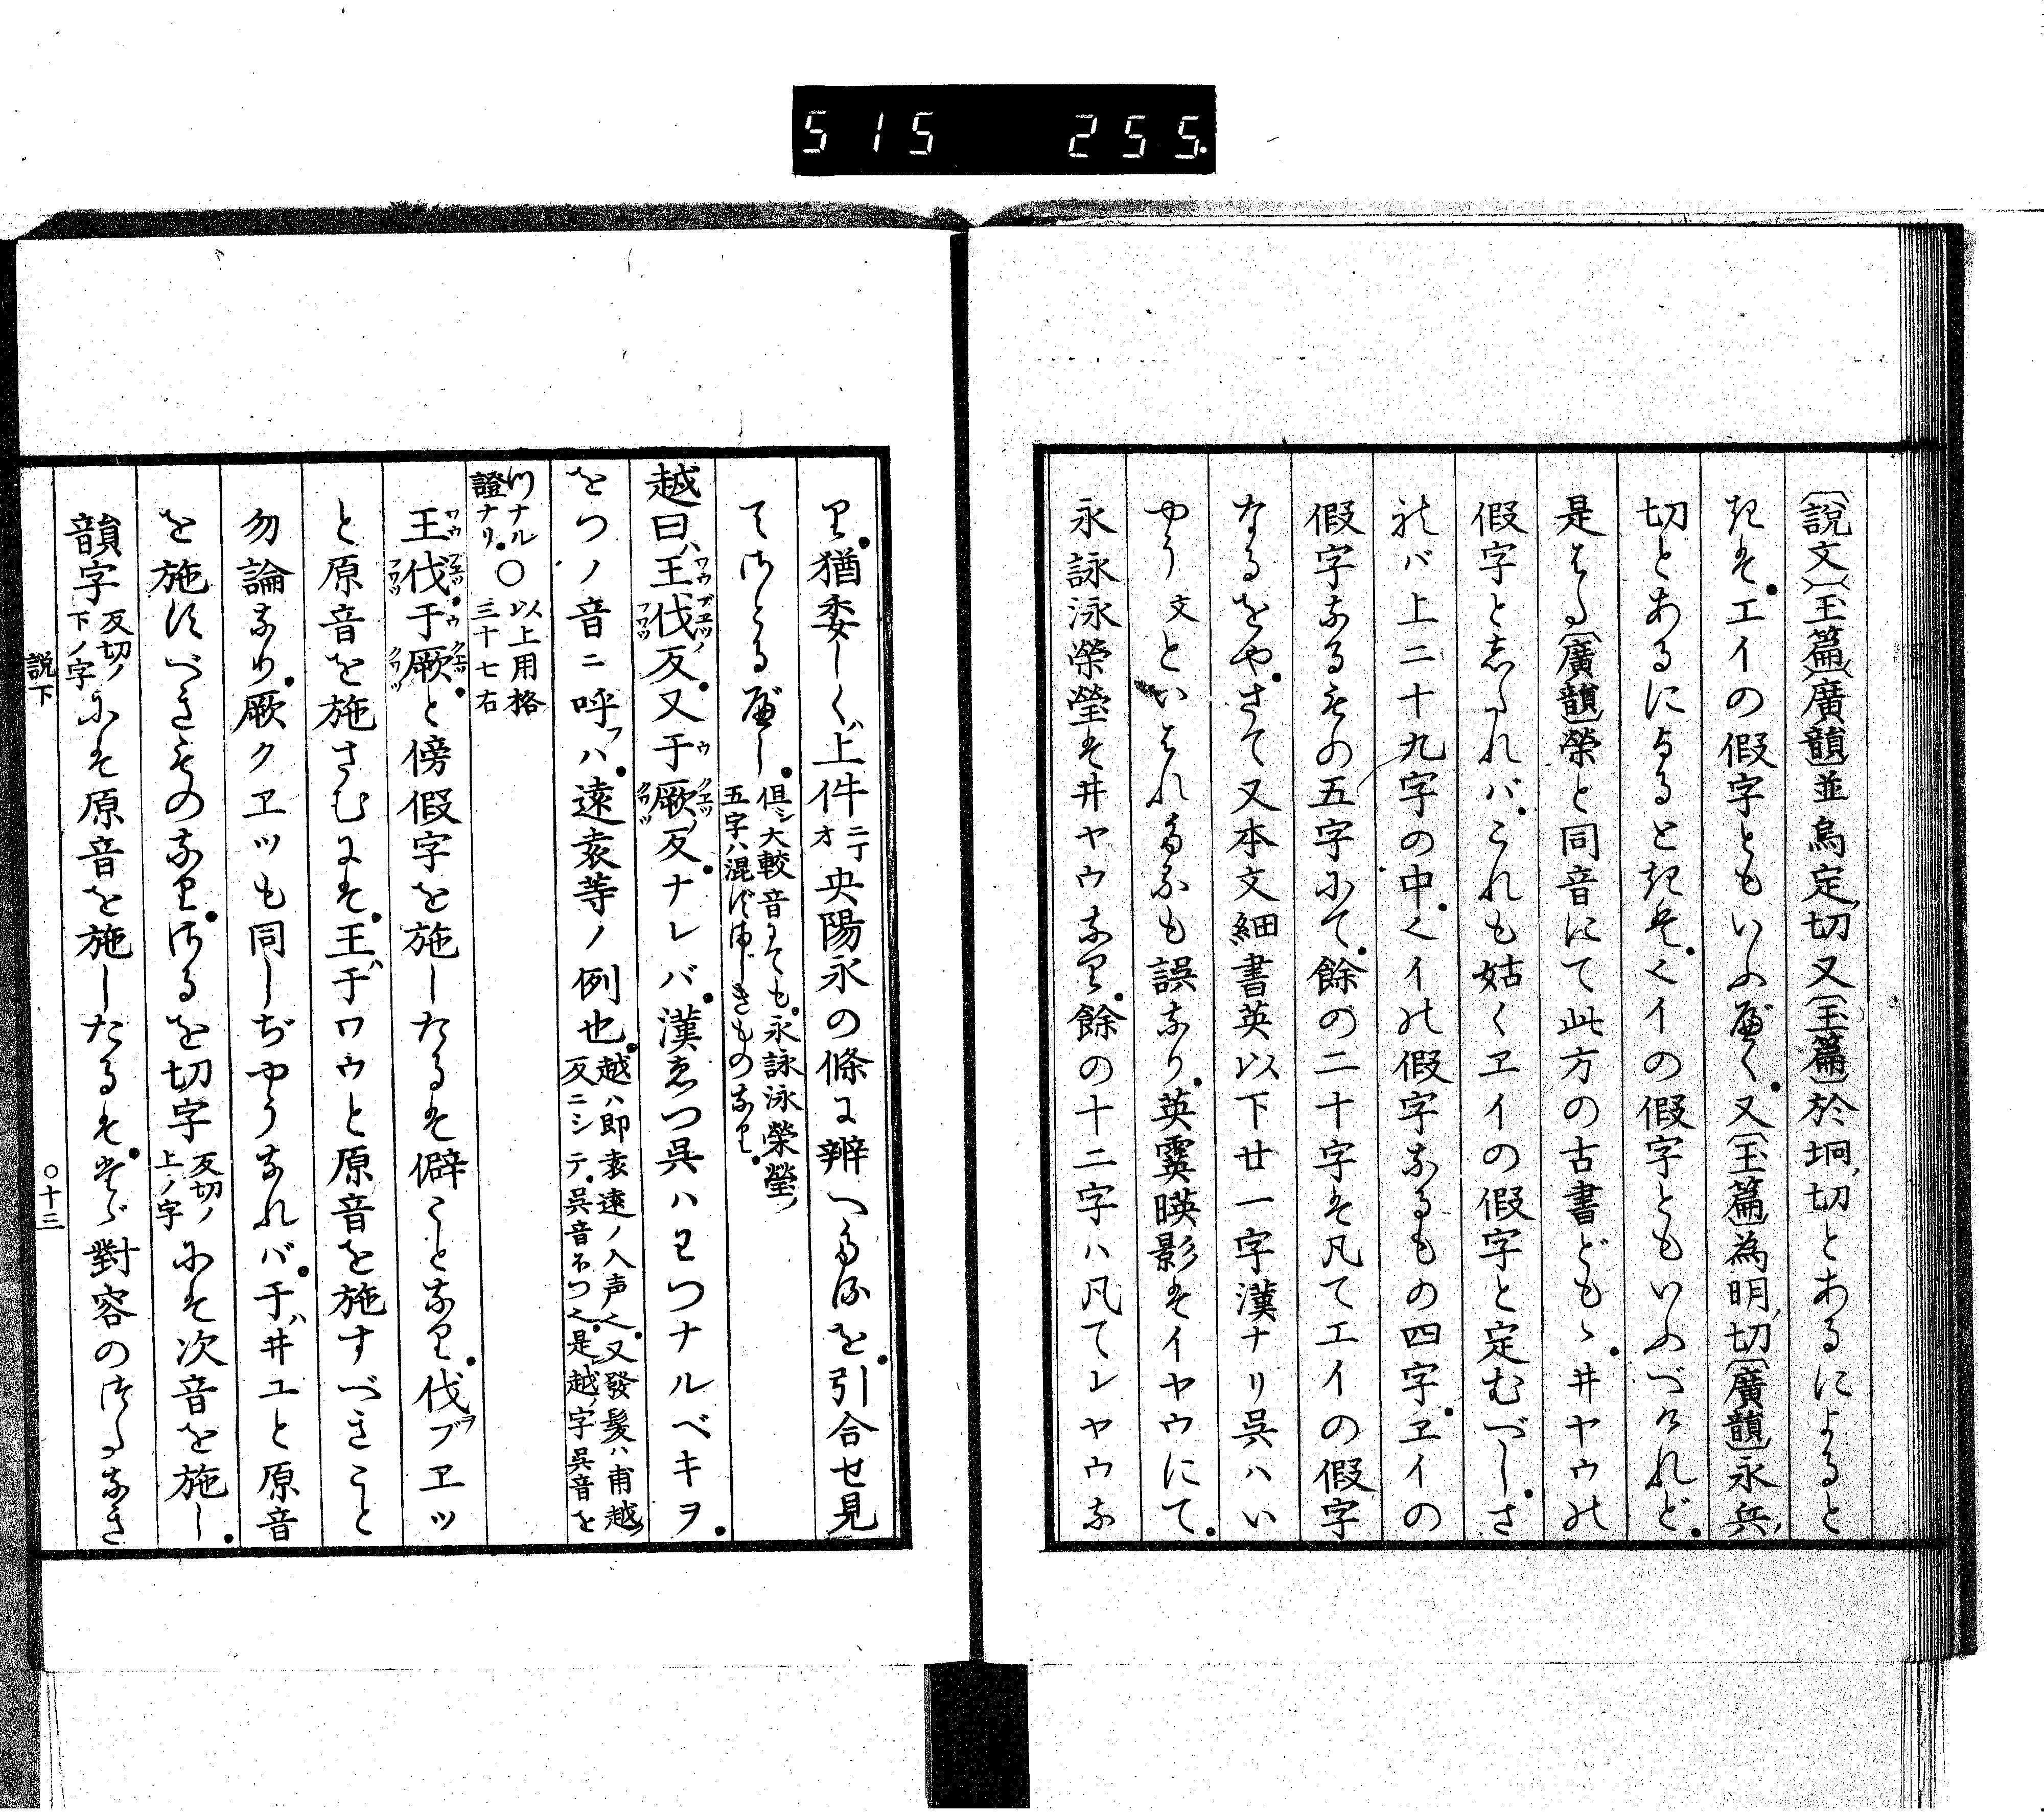 515 255.
〔說文〕〔玉篇〕〔廣韻〕並烏定ノ切又〔玉篇〕於坰ノ切とあるによると
きは。エイの假字ともいふべく。又〔玉篇〕為明ノ切〔廣韻〕永兵ノ
切とあるによるときは。くイの假字ともいふべけれど。
是はた〔廣韻〕榮と同音にて此方の古書どもゝ。井ヤウの
假字としたれバ。これも姑くヱイの假字と定むべし。さ
れバ上二十九字の中。くイの假字なるもの四字。ヱイの
假字なるもの五字にて。餘の二十字は凡てエイの假字
なるをや。さて又本文細書英以下廿一字漢ナリ呉ハい
やう文といはれたるも誤なり。英霙暎影はイヤウにて。
永詠泳榮瑩は井ヤウなり。餘の十二字ハ凡てレヤウな
り。猶委しくハ上件二丁オ央陽永の條に辨へたるを。引合せ見
てさとるべし。但シ大較音にても。永詠泳榮瑩ノ
五字ハ混ずまじきものなり。
越曰ハ王ワウ伐ブヱツフワツノ反。又于ウ厥クヱツクワツノ反。ナレバ。漢ゑつ呉ハわつナルベキヲ。
をつノ音ニ呼フハ。遠袁等ノ例也。越ハ即袁遠ノ入声く。又發髮ハ甫越ノ
反ニシテ。呉音ほつく。是越ノ字呉音を
つナル
證ナリ。〇以上用格
三十七右
王ワウ伐ブヱツフワツ。于ウ厥クヱツクワツ。と傍假字を施したるは僻ことなり。伐ヲブヱツ
と原音を施さむには。王ヲバワウと原音を施すべきこと
勿論なり。厥クヱツも同しぢやうなれバ。于ヲバ井ユと原音
を施すべきものなり。さるを切字反切ノ
上ノ字には次音を施し。
韻字反切ノ
下ノ字には原音を施したるは。すべて對容のさたなき
說下 〇十三